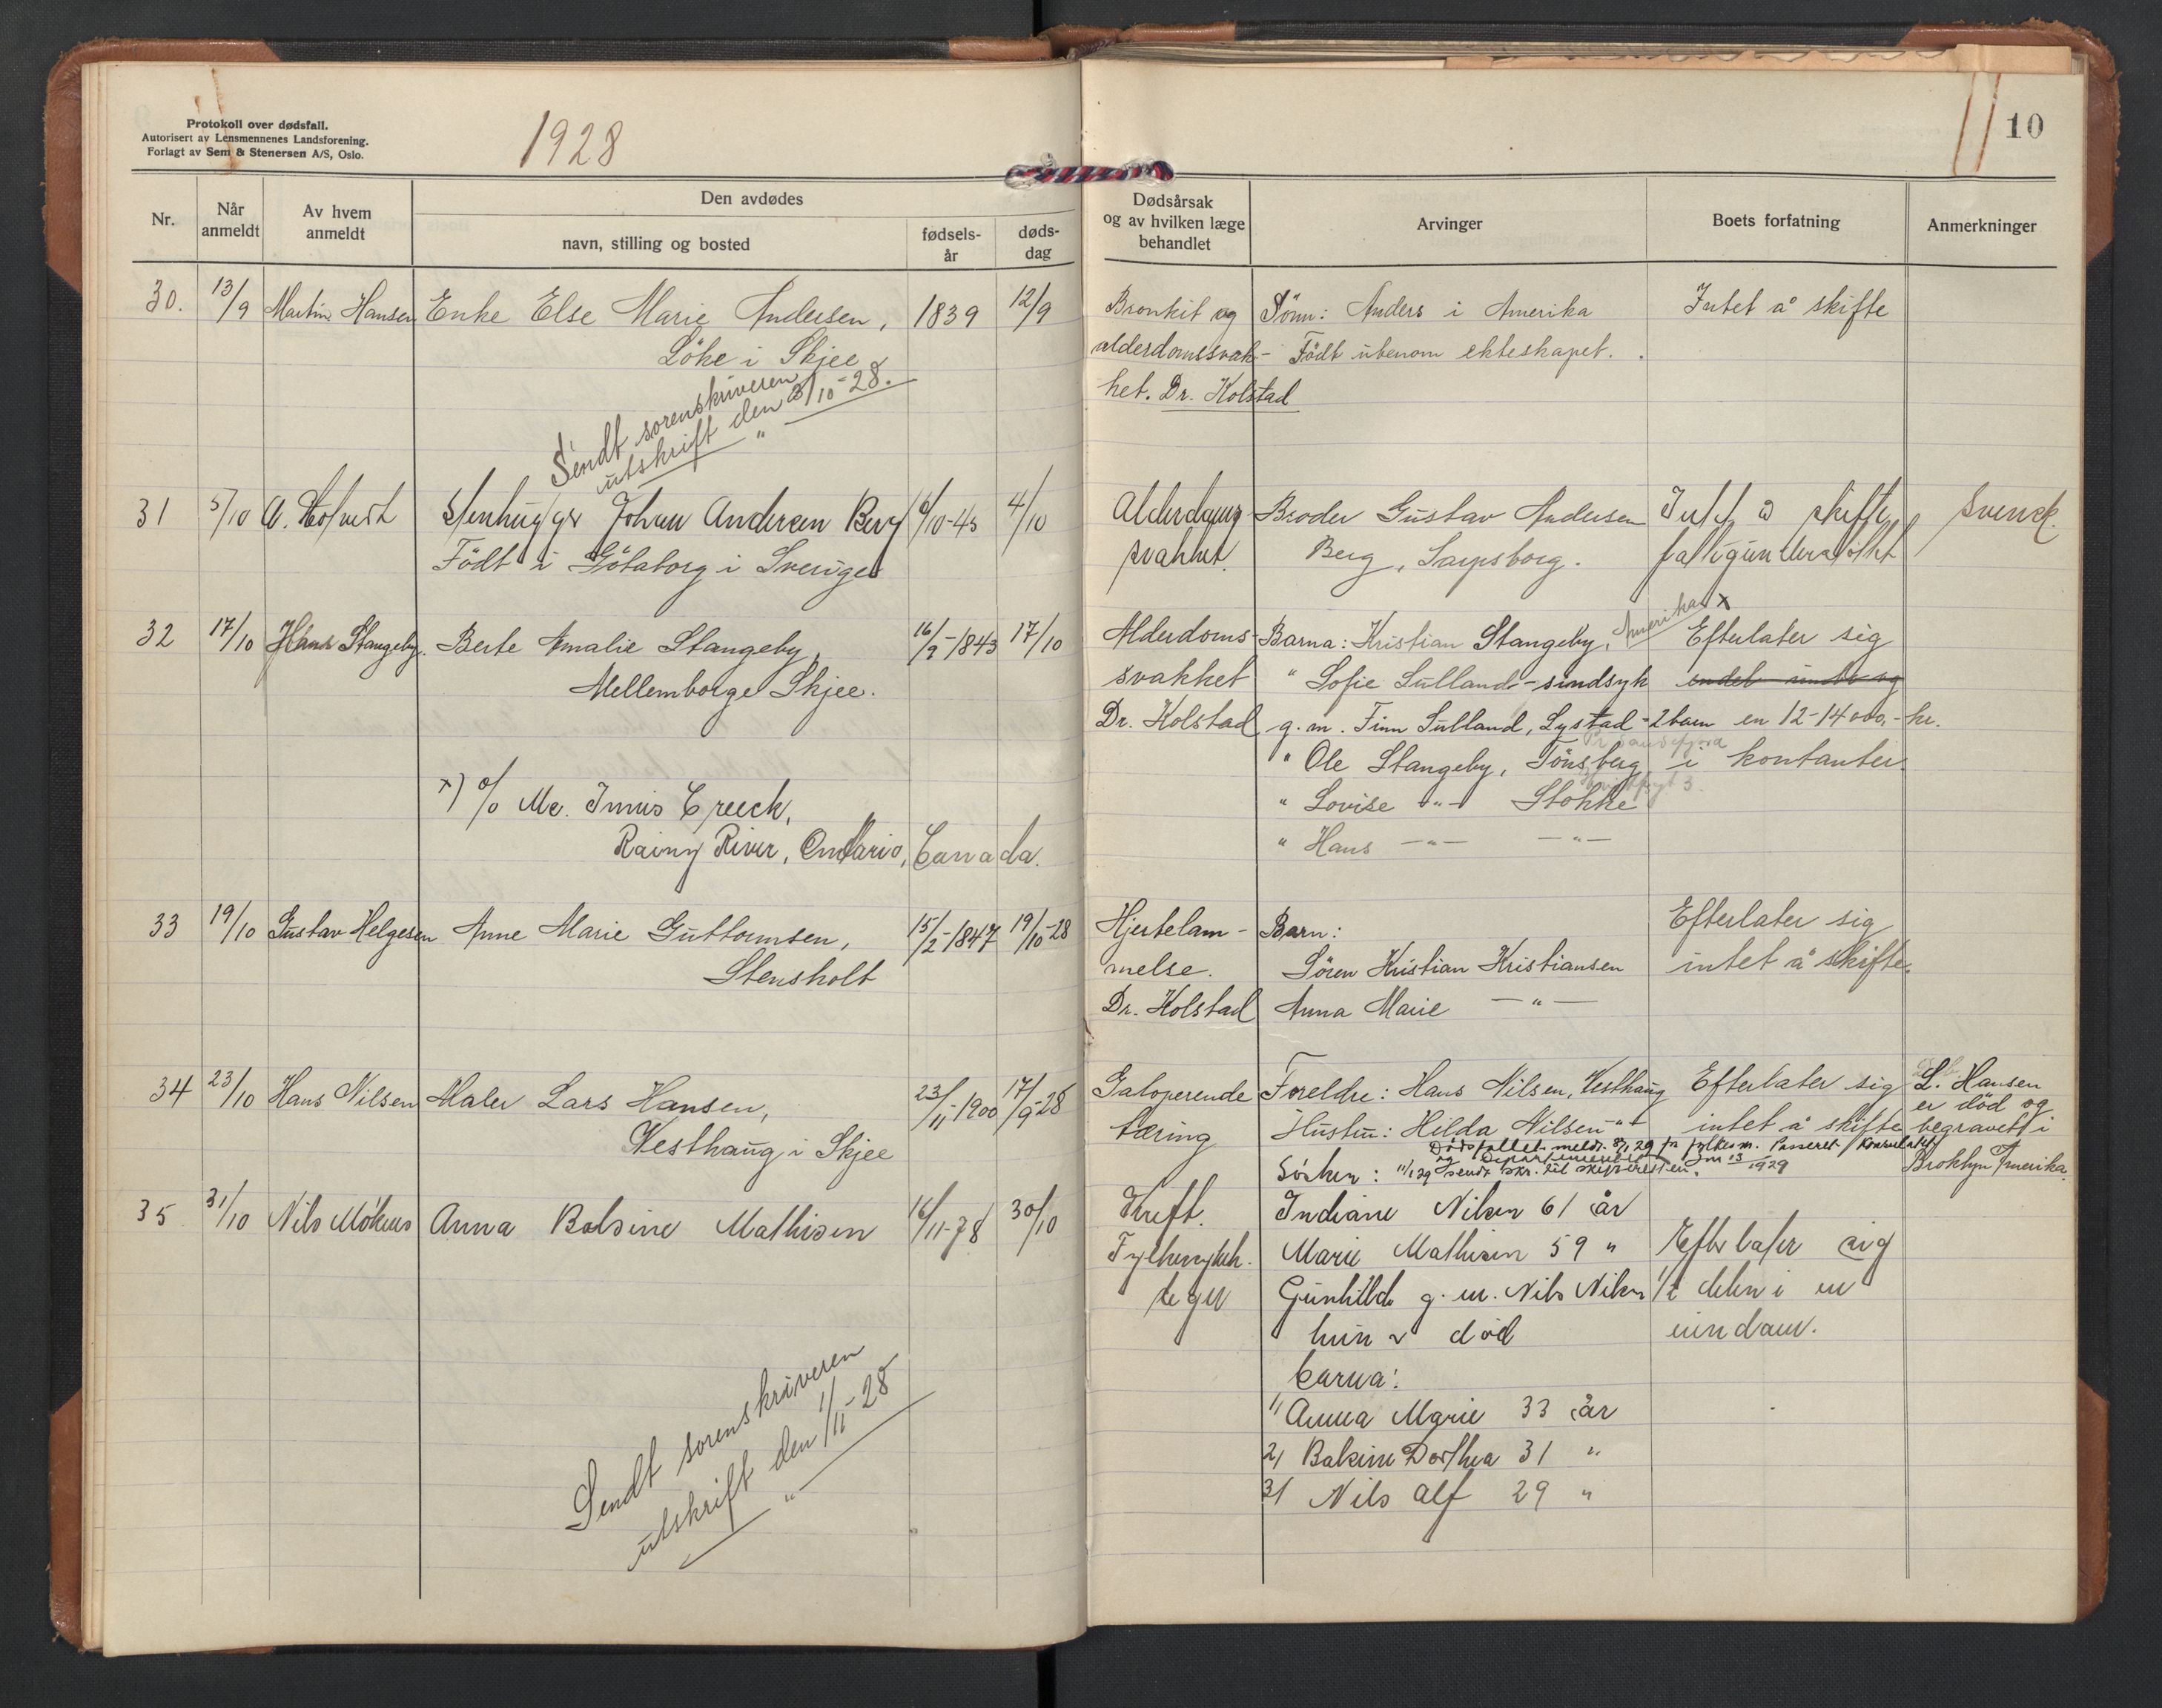 Protokoll over dødsfall.
Autorisert av Lensmennenes Landsforening.
Forlagt av Sem & Stenersen A/S, Oslo.
1928
10
Nr.
Når anmeldt
Av hvem anmeldt
Den avdødes
navn, stilling og bosted
fødsels-år
døds-dag
Dødsårsak og av hvilken læge behandlet
Arvinger
Boets forfatning
Anmerkninger
30. 13/9 Martin Hansen Enke Else Marie Andersen, 1839 12/9 Bronkit og Sönn: Anders i Amerika Intet å skifte
Löke i Skjee alderdomssvak- Födt utenom ekteskapet.
het. Dr. Kolstad
Sendt sorenskriveren
utskrift den 3/10-28.
31 5/10 Stenhugger Johan Andersen Berg 6/10-45 4/10 Alderdoms Broder Gustav Andersen Intet å skifte svensk.
Födt i Göteborg i Sverige svakhet. Berg, Sarpsborg. fattigunderstöttet
32 17/10 Hans Stangeby. Berte Amalie Stangeby, 16/9-1843 17/10 Alderdoms- Barna: Kristian Stangeby, Amerika x Efterlater sig
Mellemborge Skjee. svakhet " Sofie Sulland - sindsyk
Dr. Kolstad g.m. Finn Sulland, Lystad - 2 barn en 12-14000,- kr.
" Ole Stangeby, Tönsberg i kontanter.
x) c/o Mc. Innis Creeck, " Lovise -"- Stokke
Rainy River, Ontario, Canada. " Hans -"- -"-
33 19/10 Gustav Helgesen Anne Marie Guttormsen, 15/2-1847 19/10-28 Hjertelam- Barn: Efterlater sig
Stensholt melse. Sören Kristian Kristiansen intet å skifte.
Dr. Kolstad Anna Marie -"-
34 23/10 Hans Nilsen Maler Lars Hansen, 23/11-1900 17/9-28 Galoperende Foreldre: Hans Nilsen, Vesthaug Efterlater sig L. Hansen
er död og
Vesthaug i Skjee tæring Hustru: Hilda Nilsen -"- intet å skifte begravet i
Dödsfallet meldt 8/1 29 fra fylkesm.
11/1 29 sendt skr. til skifteretten. 1929 Broklyn Amerika.
Sösken:
35 31/10 Nils Anna Bolsine Mathisen 16/11-78 30/10 Kreft. Indiane Nilsen 61 år
Marie Mathisen 59 " Efterlater sig
Gunhild g.m. Nils Nilsen 1/2 delen i en
hun er död eiendom.
barna:
1/ Anna Marie 33 år
2/ Bolsine Dorthea 31 "
3/ Nils Alf 29 "
Sendt sorenskriveren
utskrift den 1/11-28